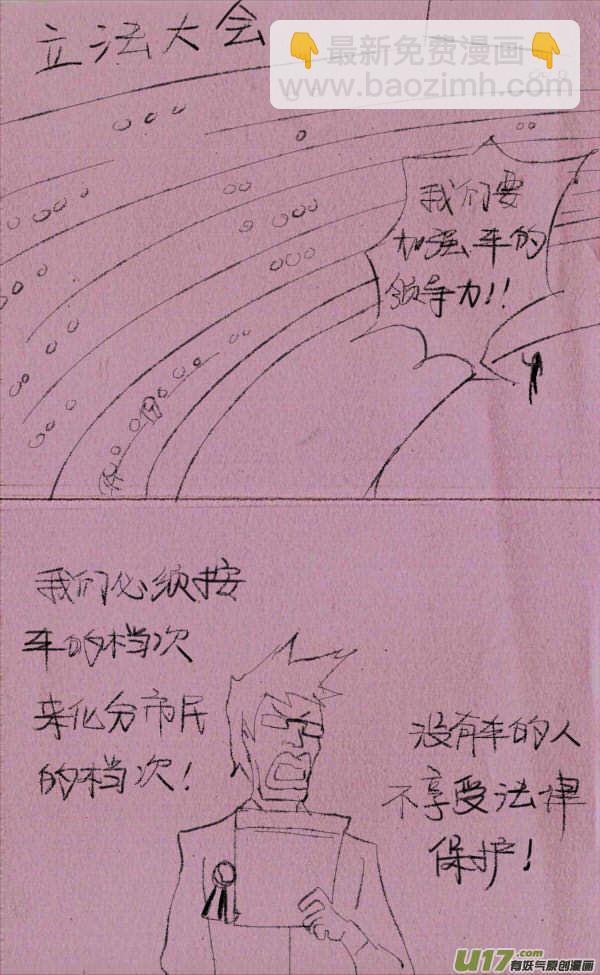 立法大会
👇最新免费漫画👇
www.baozimh.com
我们要
加强车的
领导力!!
我们必须按
车的档次
来化分市民
的档次!
没有车的人
不享受法律
保护!
U17.com
有妖气原创漫画